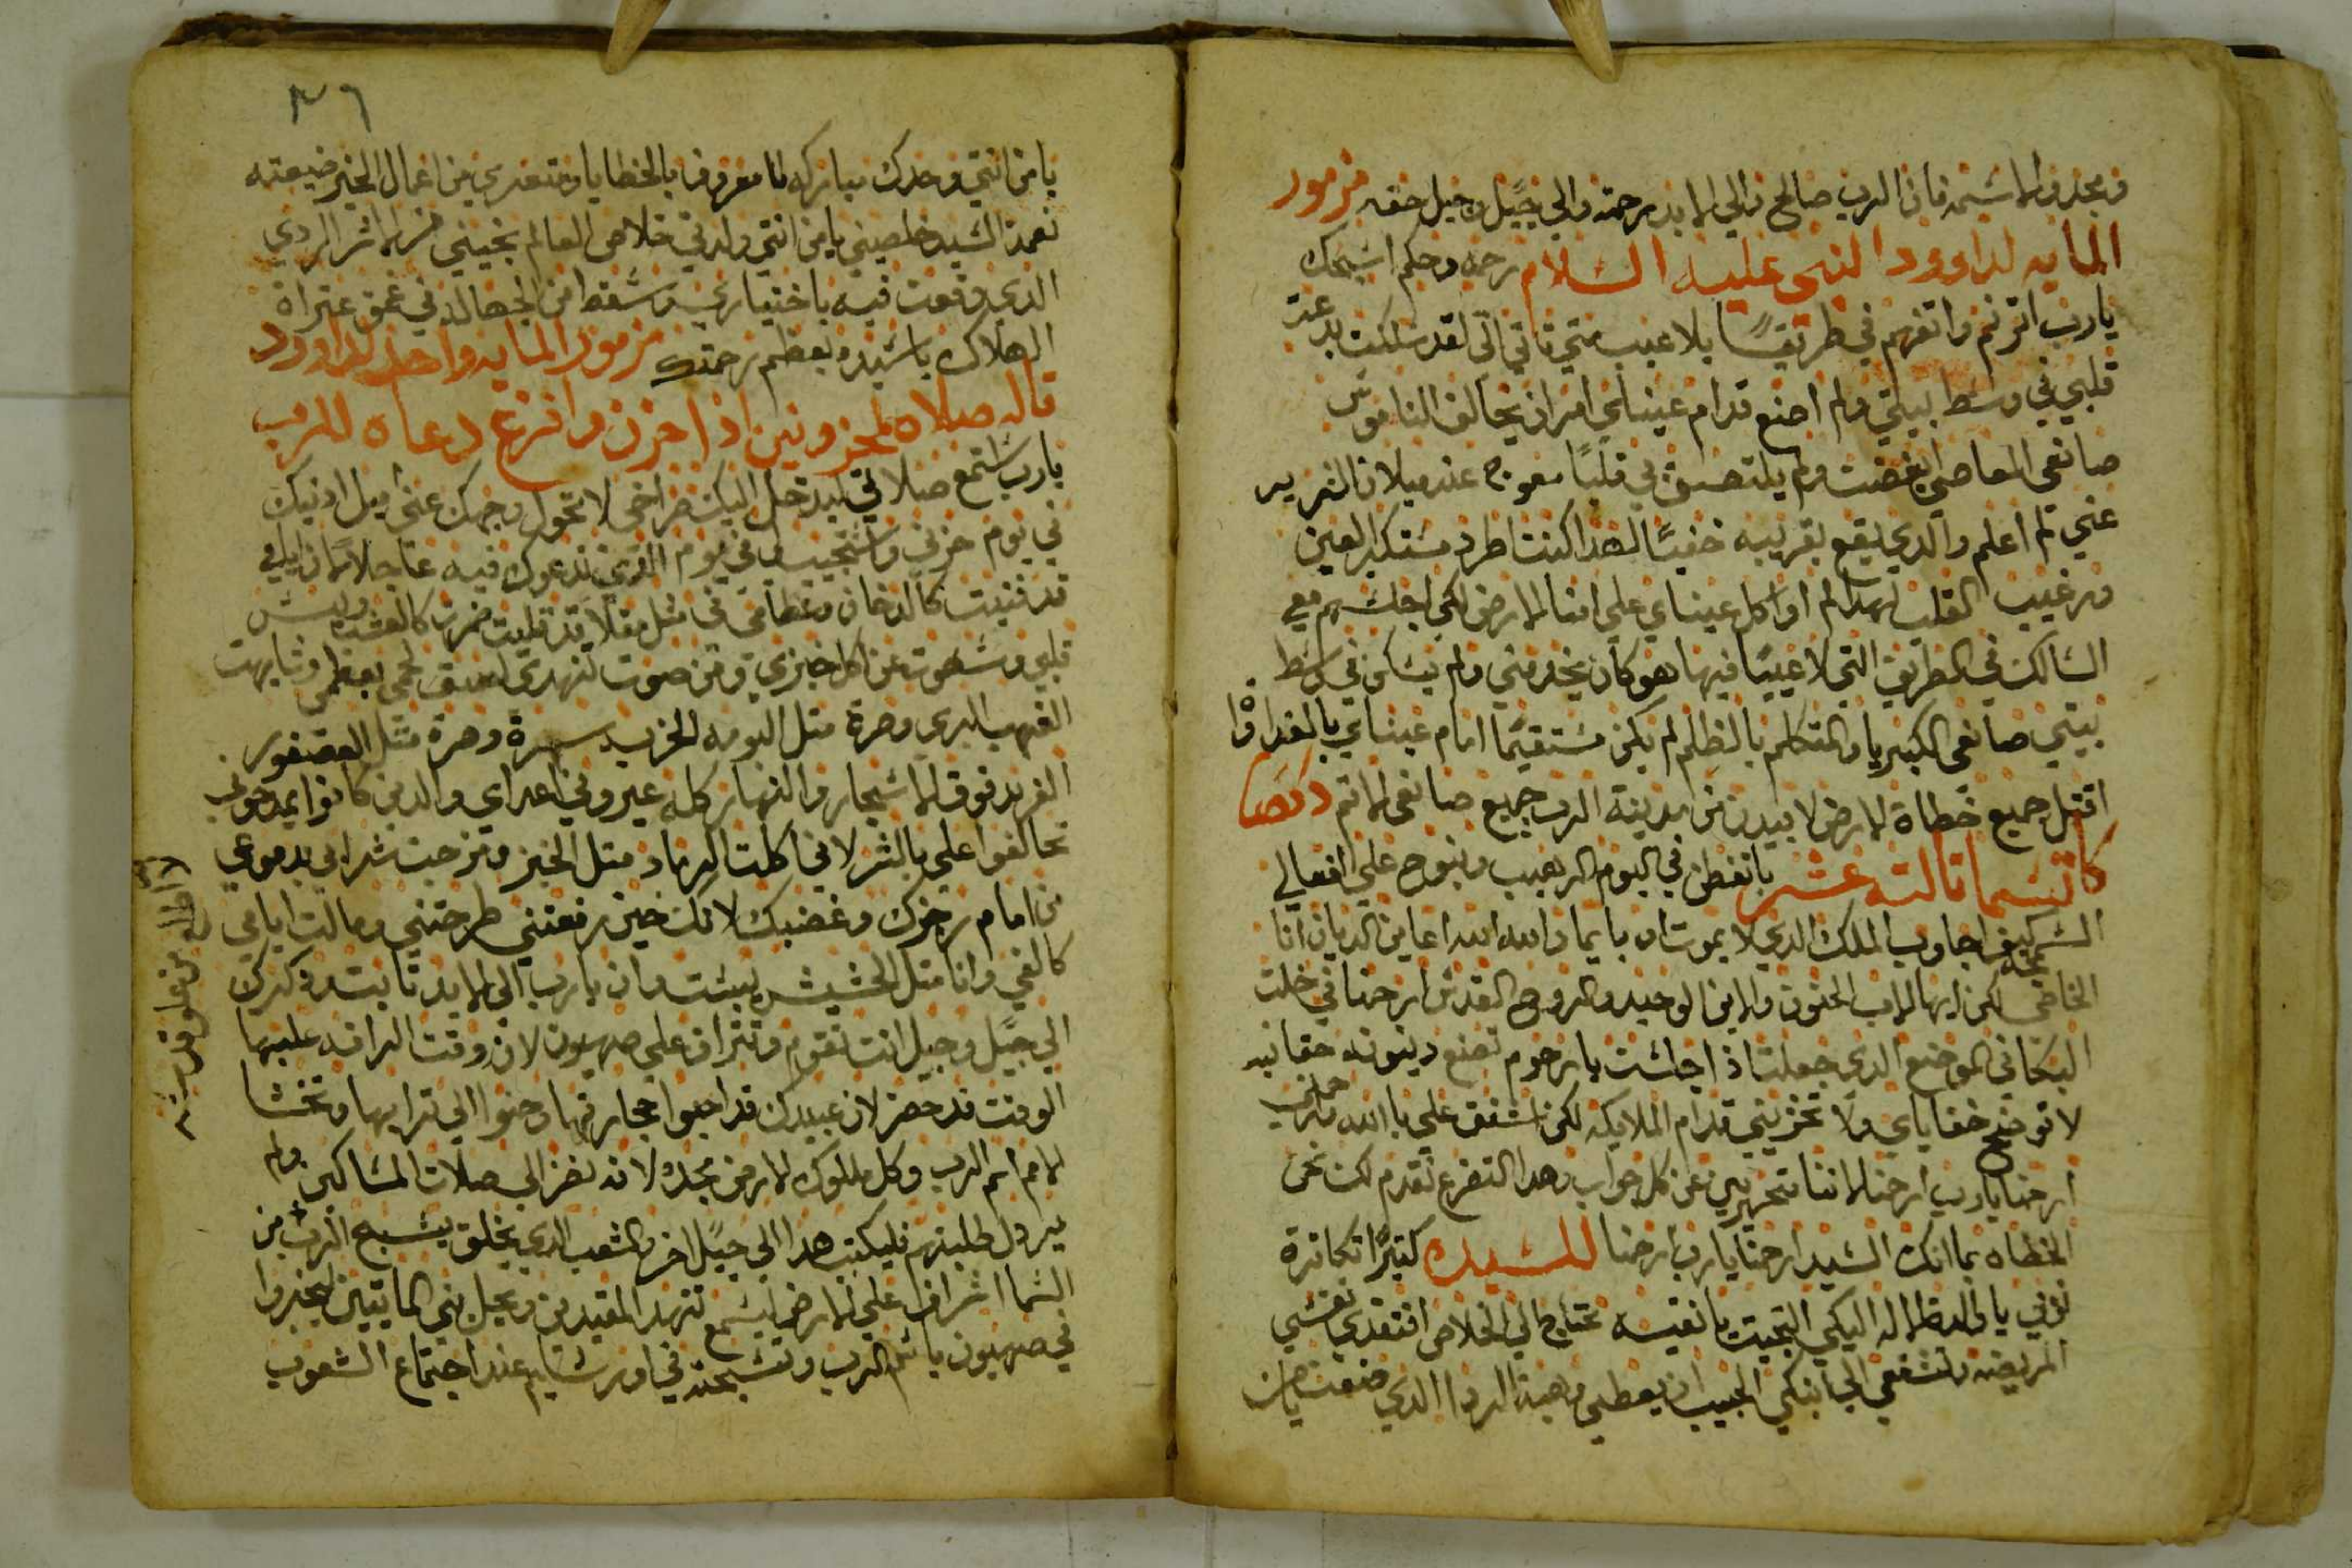 ومجدوا لاسمه فان الرب صالح والي الابد رحمته والي جيل وجيل حقه مزمور
المايه لداوود النبي عليه السلام رحمه وحكم اسبحك
يارب اترنم واتفهم في طريقًا بلا عيب متي تاتي الي لقد سلكت بدعة
قلبي في وسط بيتي ولم اصنع قدام عيناي امرا يخالف الناموس
صانعي المعاصي ابغضت ولم يلتصق بي قلبًا معوج عند ميلان الشرير
عني لم اعلم والدي يقع بقريبه خفيًا لهدا كنت اطرد مستكبر العين
ورغيب القلب لهدا لم اواكل عيناي علي امنا الارض لكي اجلسهم معي
السالك في الطريق التي لا عيبًا فيها هو كان يخدمني ولم يسكن في وسط
بيتي صانعي الكبريا والمتكلم بالظلم لم يكن مستقيمًا امام عيناي بالغدواة
اقتل جميع خطاة الارض لابيد من مدينة الرب جميع صانعي الاتم دكصا
كاتسما تالته عشر يا نفس في اليوم الرهيب ونوح علي افعالي
السمجه كيف اجاوب الملك الدي لا يموت اه بايما والله الله اعاين الديان انا
الخاطي لكن ايها الاب الحنون والابن الوحيد والروح القدس ارحمنا في خلت
البكا في الموضع الدي جعلت اذا جلست يا مرحوم تصنع دينونه حقانيه
لا توضح خفاياي ولا تخزيني قدام الملايكه لكن اشفق علي يا الله وارحمني
ارحمنا يارب ارحمنا لاننا متحيرين عن كل جواب وهدا التضرع نقدم لك نحن
الخطاه بما انك السيد ارحمنا يارب ارحمنا للسيده كتيرًا تكاترة
نوبي يا والدة الاله اليكي التجيت يا نقيه محتاج الي الخلاص افتقدي نفسي
المريضه وتشفعي الي ابنكي الحبيب ان يعطي وهبة الردا الدي صنعت يا من
٣٦
يا من انتي وحدك مباركه انا معروف بالخطايا ومتعري من اعمال الخير ضيعته
نعمة السيد خلصيني يا من انتي ولدتي خلاص العالم نجيني من الاثر الردي
الدي وقعت فيه باختياري وسقط من الجهاله في عمق عتراة
الهلاك يا سيده بعظم رحمتك مزمور المايه واحد لداوود
قاله صلاه لمحزونين اذا حزن وافزع دعاه للرب
يارب استمع صلاتي ليدخل اليك صراخي لا تحول وجهك عني اميل ادنيك
في يوم حزني واستجيب لي في يوم الدي ندعوك فيه عاجلاً فان ايامي
قد فنيت كالدخان وعظامي في متل مقلاة قد قليت ضربت كالعشب ويبس
قلبي وسهوت عن اكل خبزي ومن صوت تنهدي لصق لحمي بعظمي وشابهت
القهب البري وصرة متل البومه الخرب سهرة وصرة متل العصفور
الفريد فوق الاسجار والنهار كله عيروني اعداي والدين كانوا يمدحوني
تحالفوا علي بالشر لاني اكلت الرماد متل الخبز ومزجت شرابي بدموعي
من امام رجزك وغضبك لانك حين رفعتني طرحتني ومالت ايامي
كالفي وانا متل الحشيش يبست وان يارب الي الابد تابت وذكرك
الي جيل وجيل انت تقوم وتتراف علي صهيون لان وقت الرافه عليها
الوقت قد حضر لان عبيدك قد احبوا حجارتها وحنوا الي ترابها وتخشا
الامم اسم الرب وكل ملوك الارض مجده لانه نضر الي صلات المساكين ولم
يردل طلبتهم فليكتب هدا الي جيل اخر والشعب الدي يخلق يسبح الرب من
السما اشراف علي الارض ليسمع تنهد المقيدين ويحل بني المايتين ليخبروا
في صهيون باسم الرب وتسبحته في اورشليم عند اجتماع الشعوب